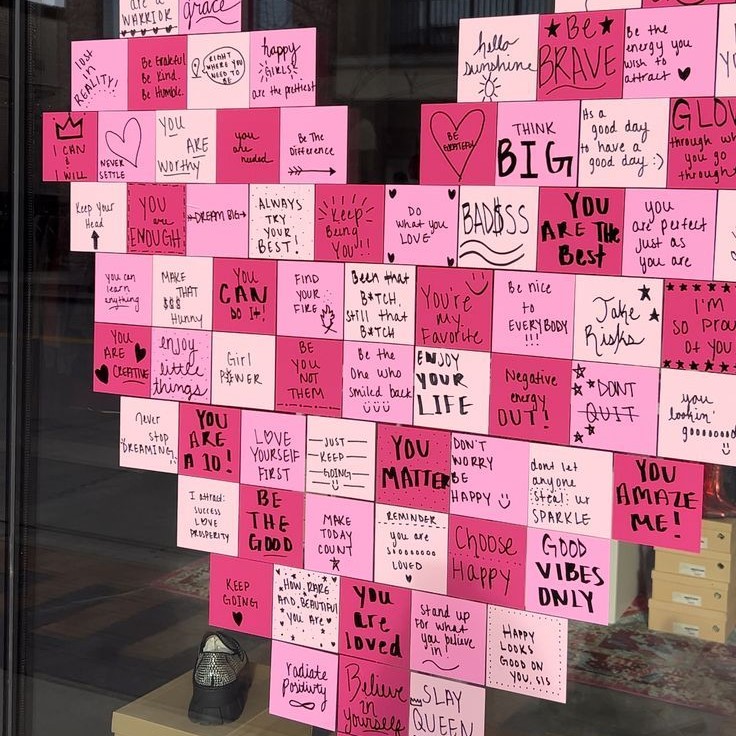 are a
WARRIOR
grace
lost
in
REALITY!
Be Grateful
Be Kind.
Be Humble.
RIGHT
WHERE YOU
NEED TO
BE
happy
GIRLS
are the prettiest
hello
sunshine
Be
BRAVE
Be the
energy you
wish to
attract
I CAN
&
I WILL
NEVER
SETTLE
YOU
ARE
Worthy
you
are
needed
Be The
Difference
BE
GRATEFUL
THINK
BIG
It's a
good day
to have a
good day :)
GLOW
through wh
you go
through
Keep Your
Head
YOU
are
ENOUGH
DREAM BIG
ALWAYS
TRY
YOUR
BEST!
Keep
Being
You!!
DO
What you
LOVE
BAD$SS
YOU
ARE THE
Best
you
are perfect
just as
you are
you can
learn
anything
MAKE
THAT
$$$
Hunny
YOU
CAN
DO IT!
FIND
YOUR
FIRE
Been that
B*TCH,
still that
B*TCH
You're
my
Favorite
Be nice
to
EVERYBODY
!!!
Take
Risks
I'M
SO PROU
OF YOU
YOU
ARE
CREATIVE
enjoy
little
things
Girl
POWER
BE
YOU
NOT
THEM
Be the
One who
smiled back
ENJOY
YOUR
LIFE
Negative
energy
OUT!
DON'T
QUIT
you
lookin'
gooooood
Never
stop
DREAMING
YOU
ARE
A 10!
LOVE
YOURSELF
FIRST
JUST
KEEP
GOING
YOU
MATTER
DON'T
WORRY
BE
HAPPY
dont let
anyone
steal ur
SPARKLE
YOU
AMAZE
ME!
I attract:
SUCCESS
LOVE
PROSPERITY
BE
THE
GOOD
MAKE
TODAY
COUNT
REMINDER
you are
soooooo
LOVED
Choose
Happy
GOOD
VIBES
ONLY
KEEP
GOING
HOW RARE
AND BEAUTIFUL
YOU ARE
You
are
loved
Stand up
FOR What
you believe
in!
HAPPY
LOOKS
GOOD ON
YOU, SIS
radiate
Positivity
Believe
in
yourself
SLAY
QUEEN